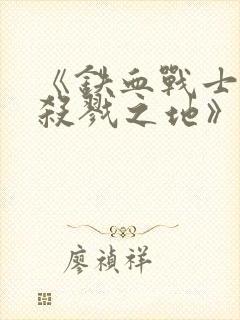 《鉄血戰士
殺戮之地》
廖禎祥